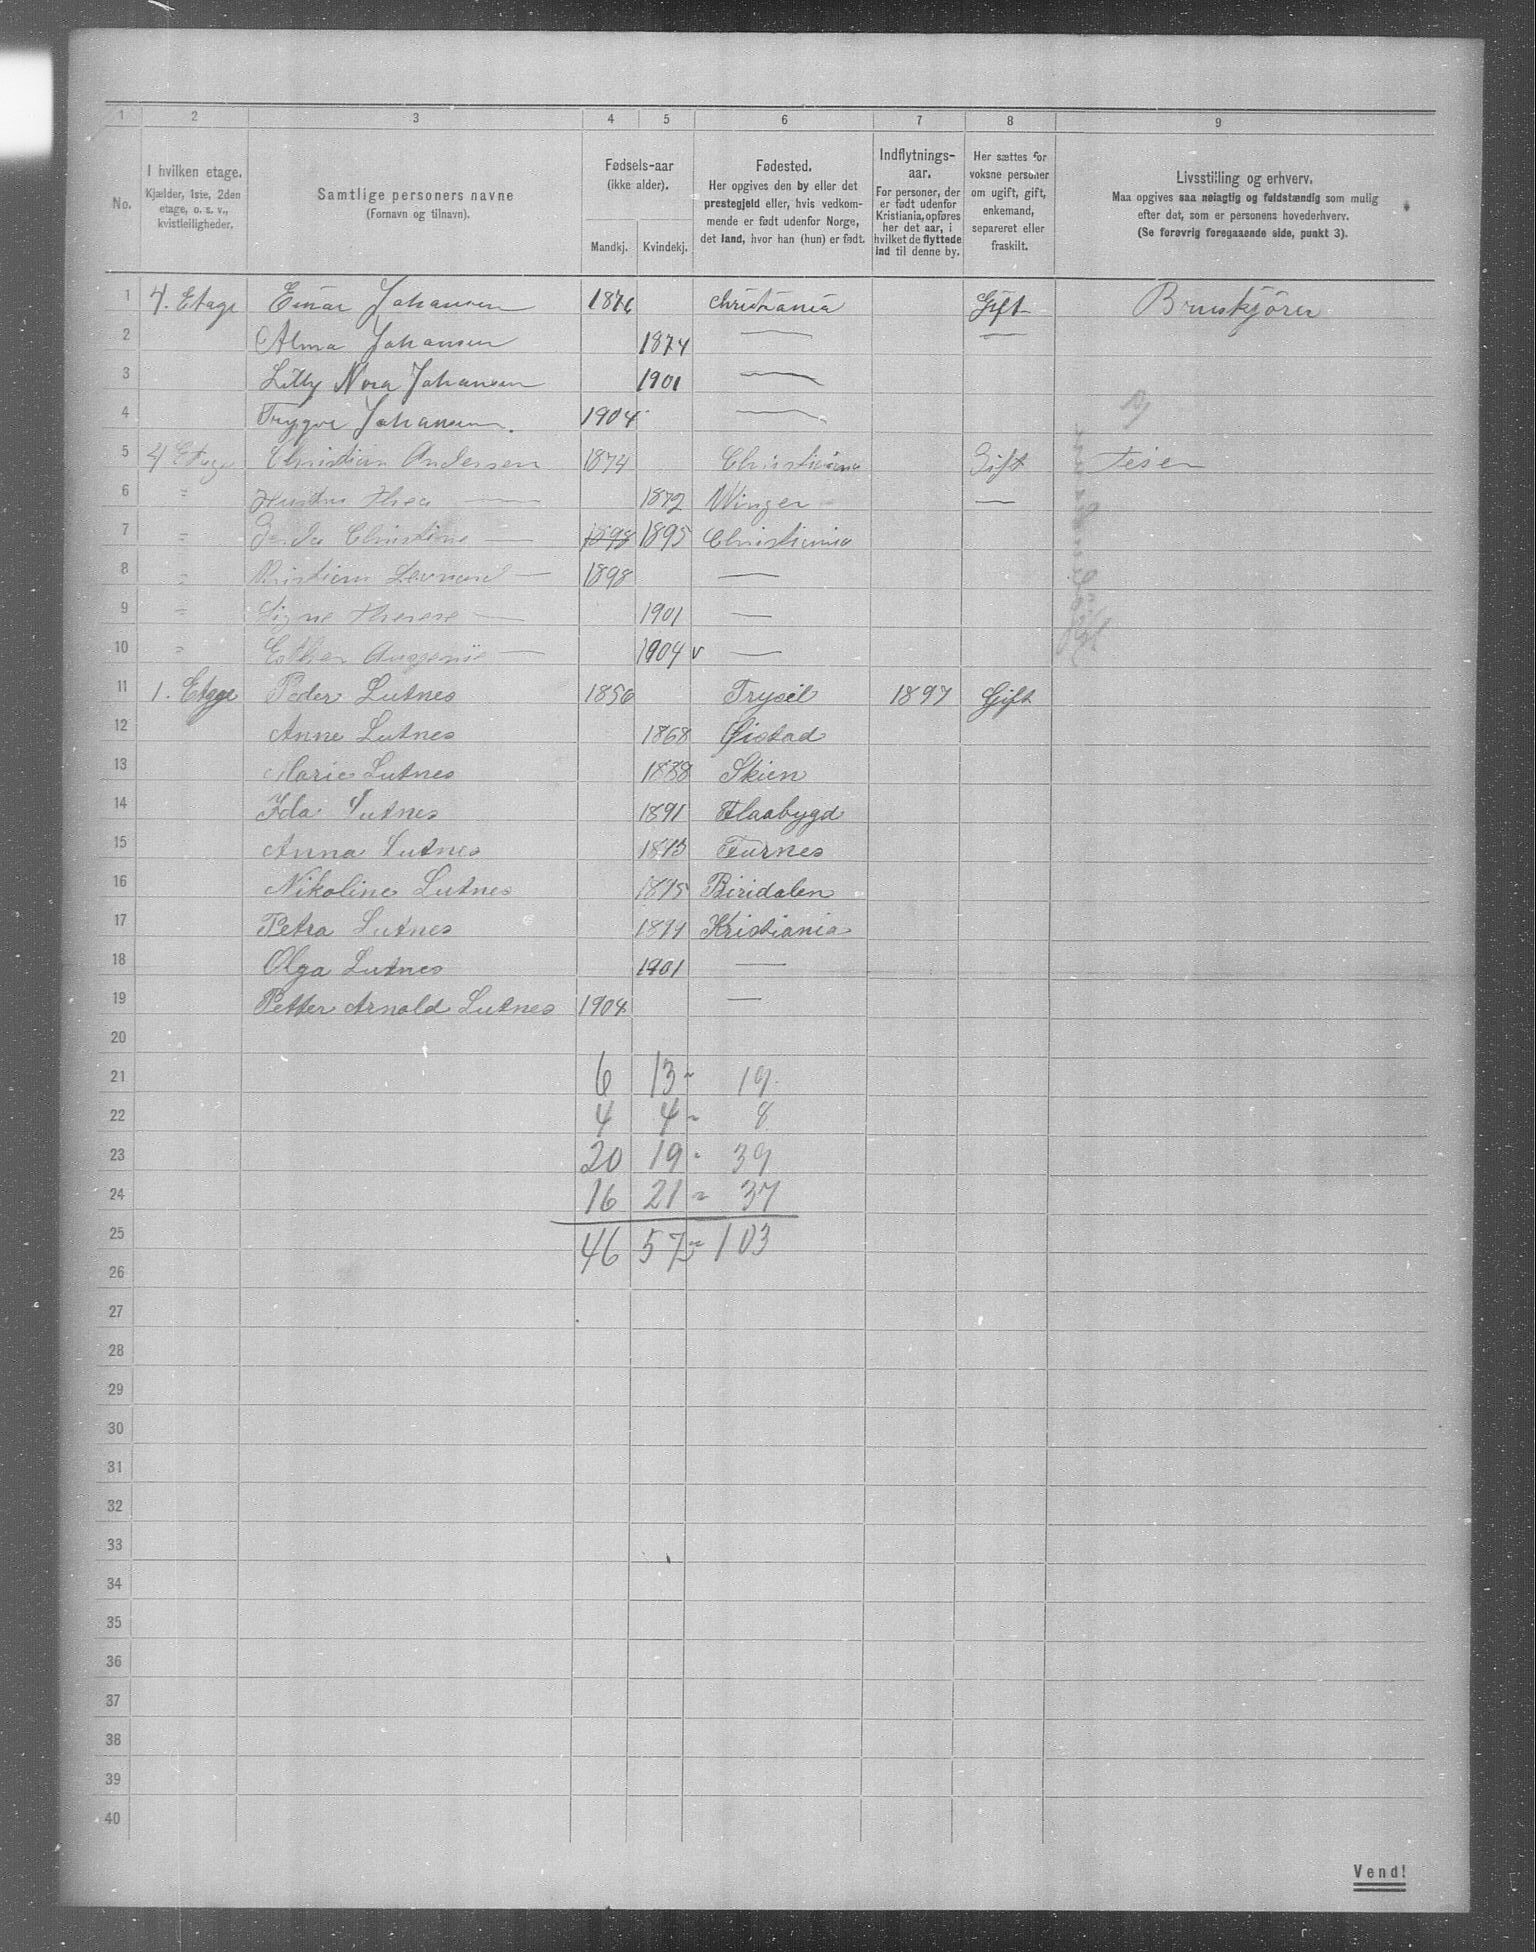 1 2 3 4 5 6 7 8 9
No.
I hvilken etage.
Kjælder, 1ste, 2den
etage, o. s. v.,
kvistleiligheder.
Samtlige personers navne
(Fornavn og tilnavn).
Fødsels-aar
(ikke alder).
Mandkj. Kvindekj.
Fødested.
Her opgives den by eller det
prestegjeld eller, hvis vedkom-
mende er født udenfor Norge,
det land, hvor han (hun) er født.
Indflytnings-
aar.
For personer, der
er født udenfor
Kristiania, opføres
her det aar, i
hvilket de flyttede
ind til denne by.
Her sættes for
voksne personer
om ugift, gift,
enkemand,
separeret eller
fraskilt.
Livsstilling og erhverv.
Maa opgives saa nøiagtig og fuldstændig som mulig
efter det, som er personens hovederhverv.
(Se forøvrig foregaaende side, punkt 3).
1 4. Etage Einar Johansen 1876 Christiania Gift Bruskjører
2 Alma Johansen 1874 — —
3 Lilly Nora Johansen 1901 —
4 Trygve Johansen. 1904 —
5 4 Etage Christian Andersen 1874 Christiania Gift
6 " Hustru Thea — 1872 Winger —
7 " Christine — 1898 1895 Christiania
8 " Kristian — 1898 —
9 " Signe Therese — 1901 —
10 " Esther — 1904 v —
11 1. Etage Peder Lutnes 1856 Trysil 1897 Gift
12 Anne Lutnes 1868 Øistad
13 Marie Lutnes 1888 Skien
14 Ida Lutnes 1891 Flaabygd
15 Anna Lutnes 1893 Furnes
16 Nikoline Lutnes 1895 Biridalen
17 Petra Lutnes 1899 Kristiania
18 Olga Lutnes 1901 —
19 Petter Arnold Lutnes 1904 —
20
21 6 13 - 19
22 4 4 - 8
23 20 19 - 39
24 16 21 - 37
25 46 57 - 103
26
27
28
29
30
31
32
33
34
35
36
37
38
39
40
Vend!